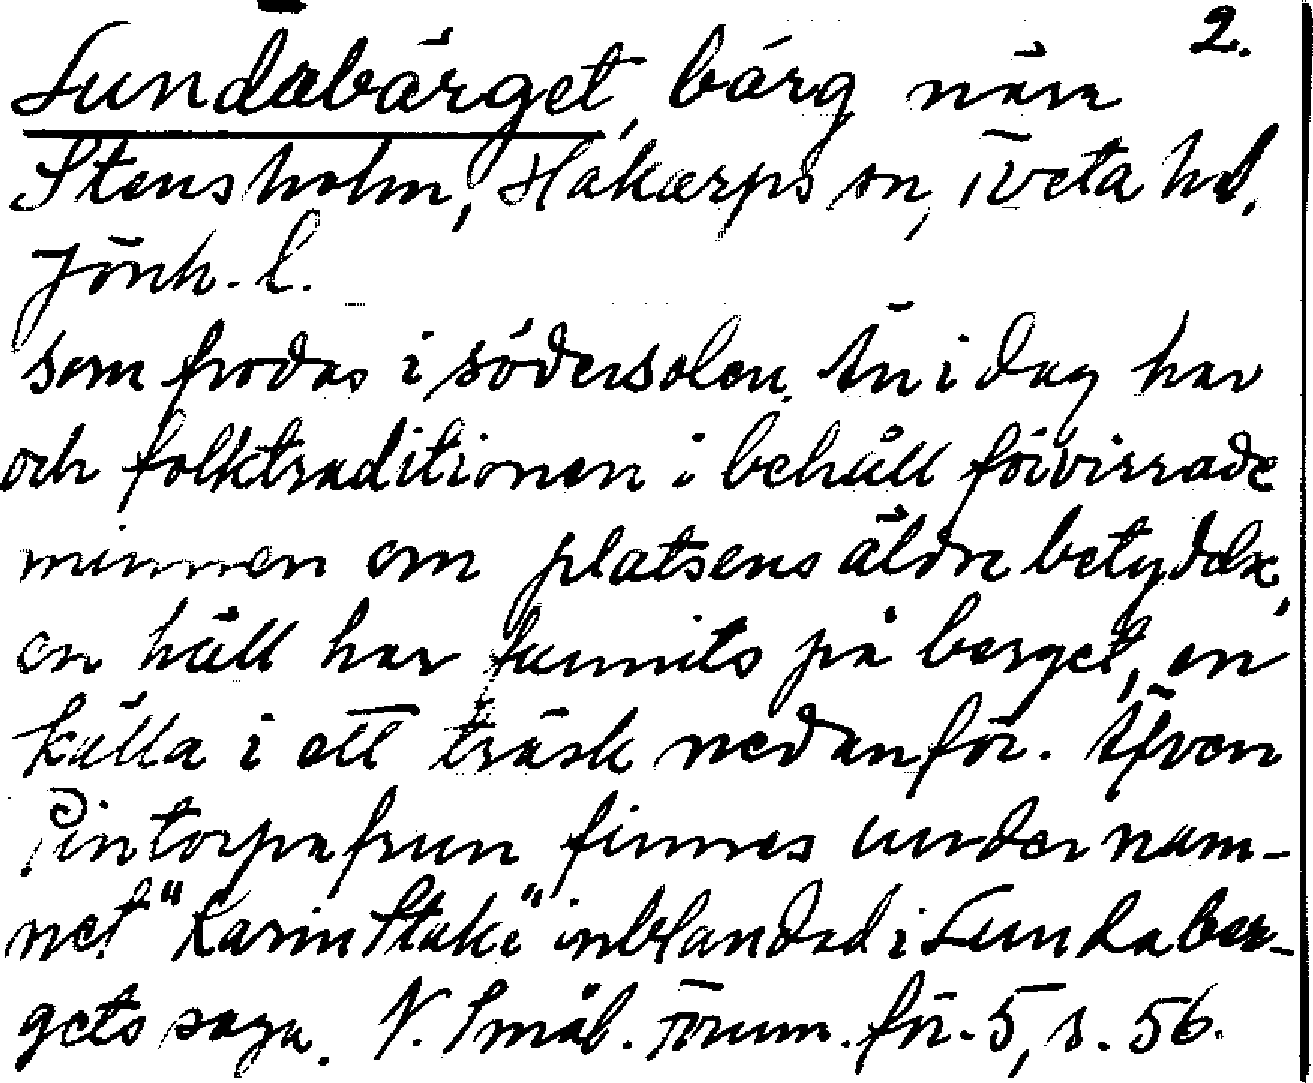 2.
Lundabärget, bärg nära
Stensholm, Hakarps sn, Tveta hd,
Jönk. l.
som frodas i södersolen. Än i dag har
och folktraditionen i behåll förvirrade
minnen om platsens äldre betydelse,
en häll har funnits på berget, en
källa i ett träsk nedanför. Äfven
Pintorpafrun finnes under nam-
net "Karin Stake" inblandad i Lundaber-
gets saga. N. Smål. Fornm.för. 5, s. 56.